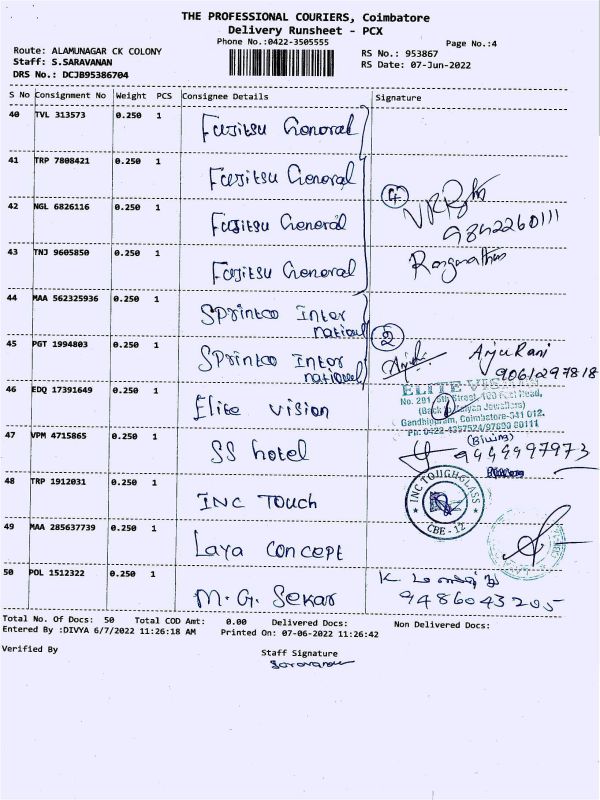 THE PROFESSIONAL COURIERS, Coimbatore
Delivery Runsheet - PCX
Phone No.:0422-3505555
Page No.:4
Route: ALAMUNAGAR CK COLONY
Staff: S.SARAVANAN
DRS No.: DCJB95386704
RS No.: 953867
RS Date: 07-Jun-2022
S No Consignment No Weight PCS Consignee Details Signature
40 TVL 313573 0.250 1 Fujitsu General
41 TRP 7808421 0.250 1 Fujitsu General
42 NGL 6826116 0.250 1 Fujitsu General
④
9842260111
43 TNJ 9605850 0.250 1 Fujitsu General
44 MAA 562325936 0.250 1 Sprintoo Inter
national
②
45 PGT 1994803 0.250 1 Sprintoo Inter
national
Anju Rani
9061297818
46 EDQ 17391649 0.250 1 Elite vision
ELITE VISION
No. 201, 5th Street, 100 Feet Road,
Gandhipuram, Coimbatore-641 012.
47 VPM 4715865 0.250 1 SS hotel
9444997973
48 TRP 1912031 0.250 1 INC Touch
INC TOUGHGLASS
CBE - 12
49 MAA 285637739 0.250 1 Laya Concept
50 POL 1512322 0.250 1 M. G. Sekar
9486043205
Total No. Of Docs: 50 Total COD Amt: 0.00 Delivered Docs: Non Delivered Docs:
Entered By :DIVYA 6/7/2022 11:26:18 AM Printed On: 07-06-2022 11:26:42
Verified By
Staff Signature
Saravanan